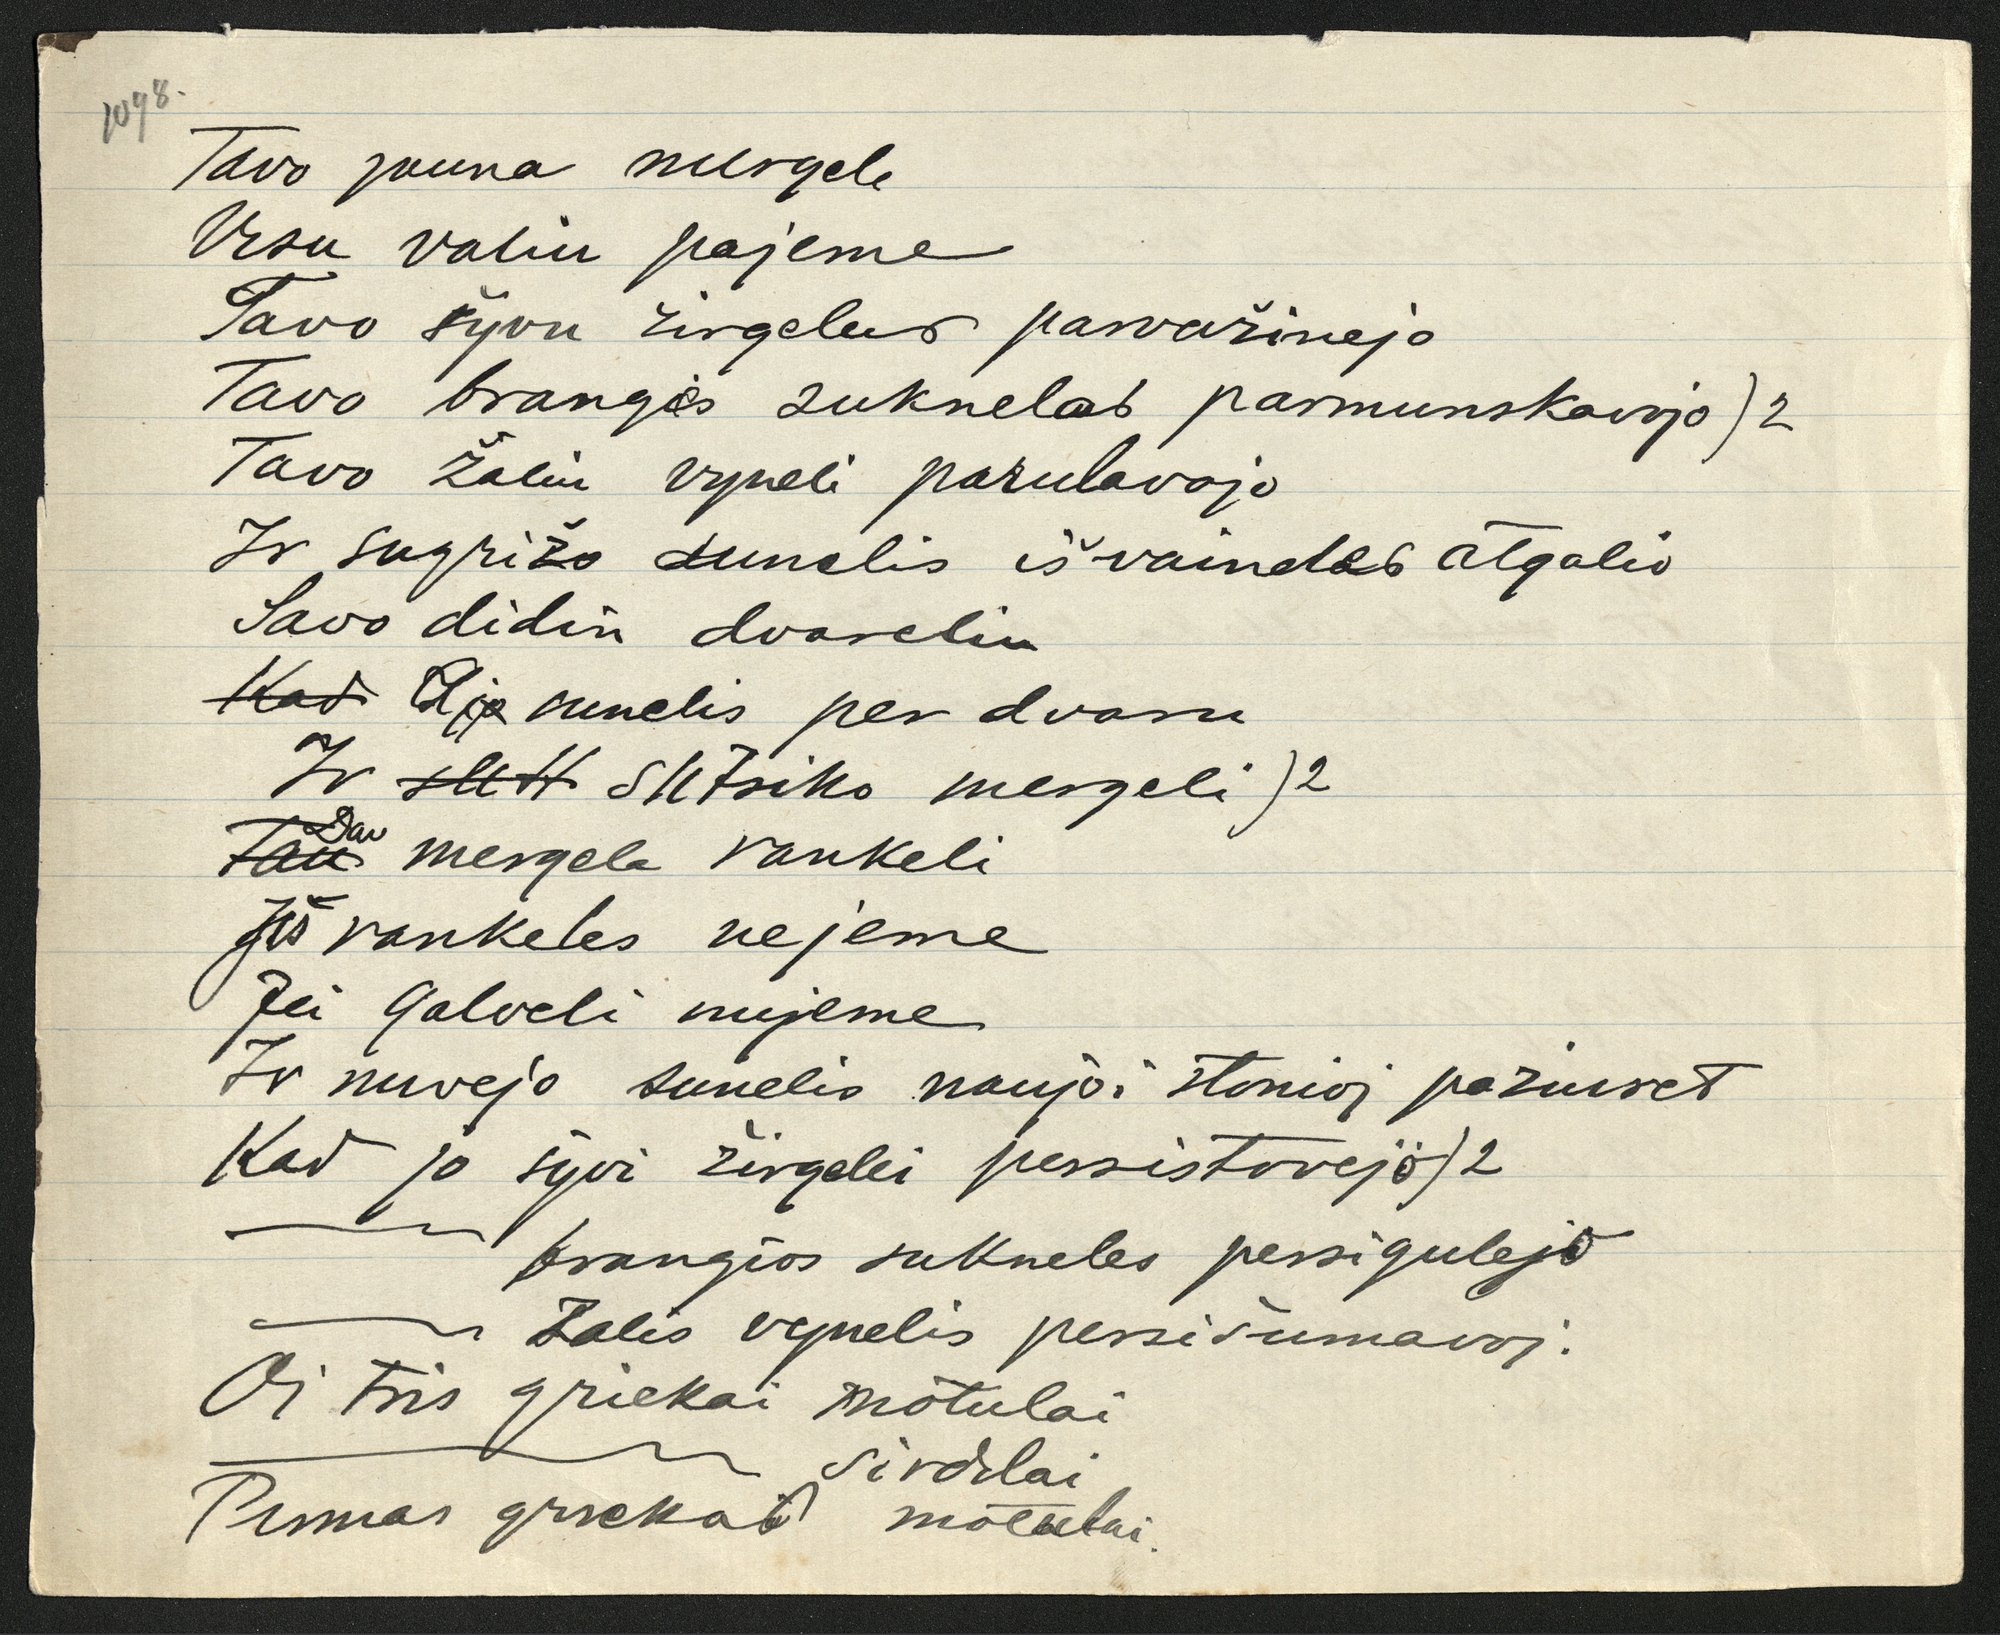 1098.
Tavo jauna mergele
Visu valiu pajeme
Tavo šyvu žirgelus parvažinejo
Tavo branges suknelas parmunskavojo )2
Tavo žaliu vyneli parulavojo
Ir sugrižo sunelis iš vaindas atgalio
Savo didin dvareliu
Kad Ejo sunelis per dvaru
Ir sutt sutsiko mergeli )2
Tau Dav mergela rankeli
Jis rankeles nejeme
Jei galveli nujeme
Ir nuvejo sunelis naujoi stonioj paziuret
Kad jo šyvi žirgelei persistovejo )2
brangios sukneles persigulejo
Zalis vynelis persišumavoj.
Oi tris griekai motulai
sirdelai
Pirmas griekas motulai.